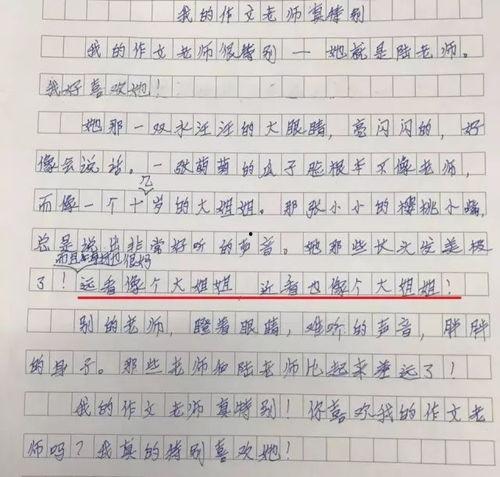 我的作文老师真特别
我的作文老师很特别——她就是陆老师。
我好喜欢她！
她那一双水汪汪的大眼睛，亮闪闪的，好
像会说话。一张萌萌的瓜子脸根本不像老师，
而像一个十几岁的大姐姐。那张小小的樱桃小嘴，
总是说出非常好听的声音。她那些长头发美极
而且身材也很好
了！远看像个大姐姐，近看也像个大姐姐！
别的老师，瞪着眼睛，难听的声音，胖胖
的身子。那些老师和陆老师比起来差远了！
我的作文老师真特别！你喜欢我的作文老
师吗？我真的特别喜欢她！